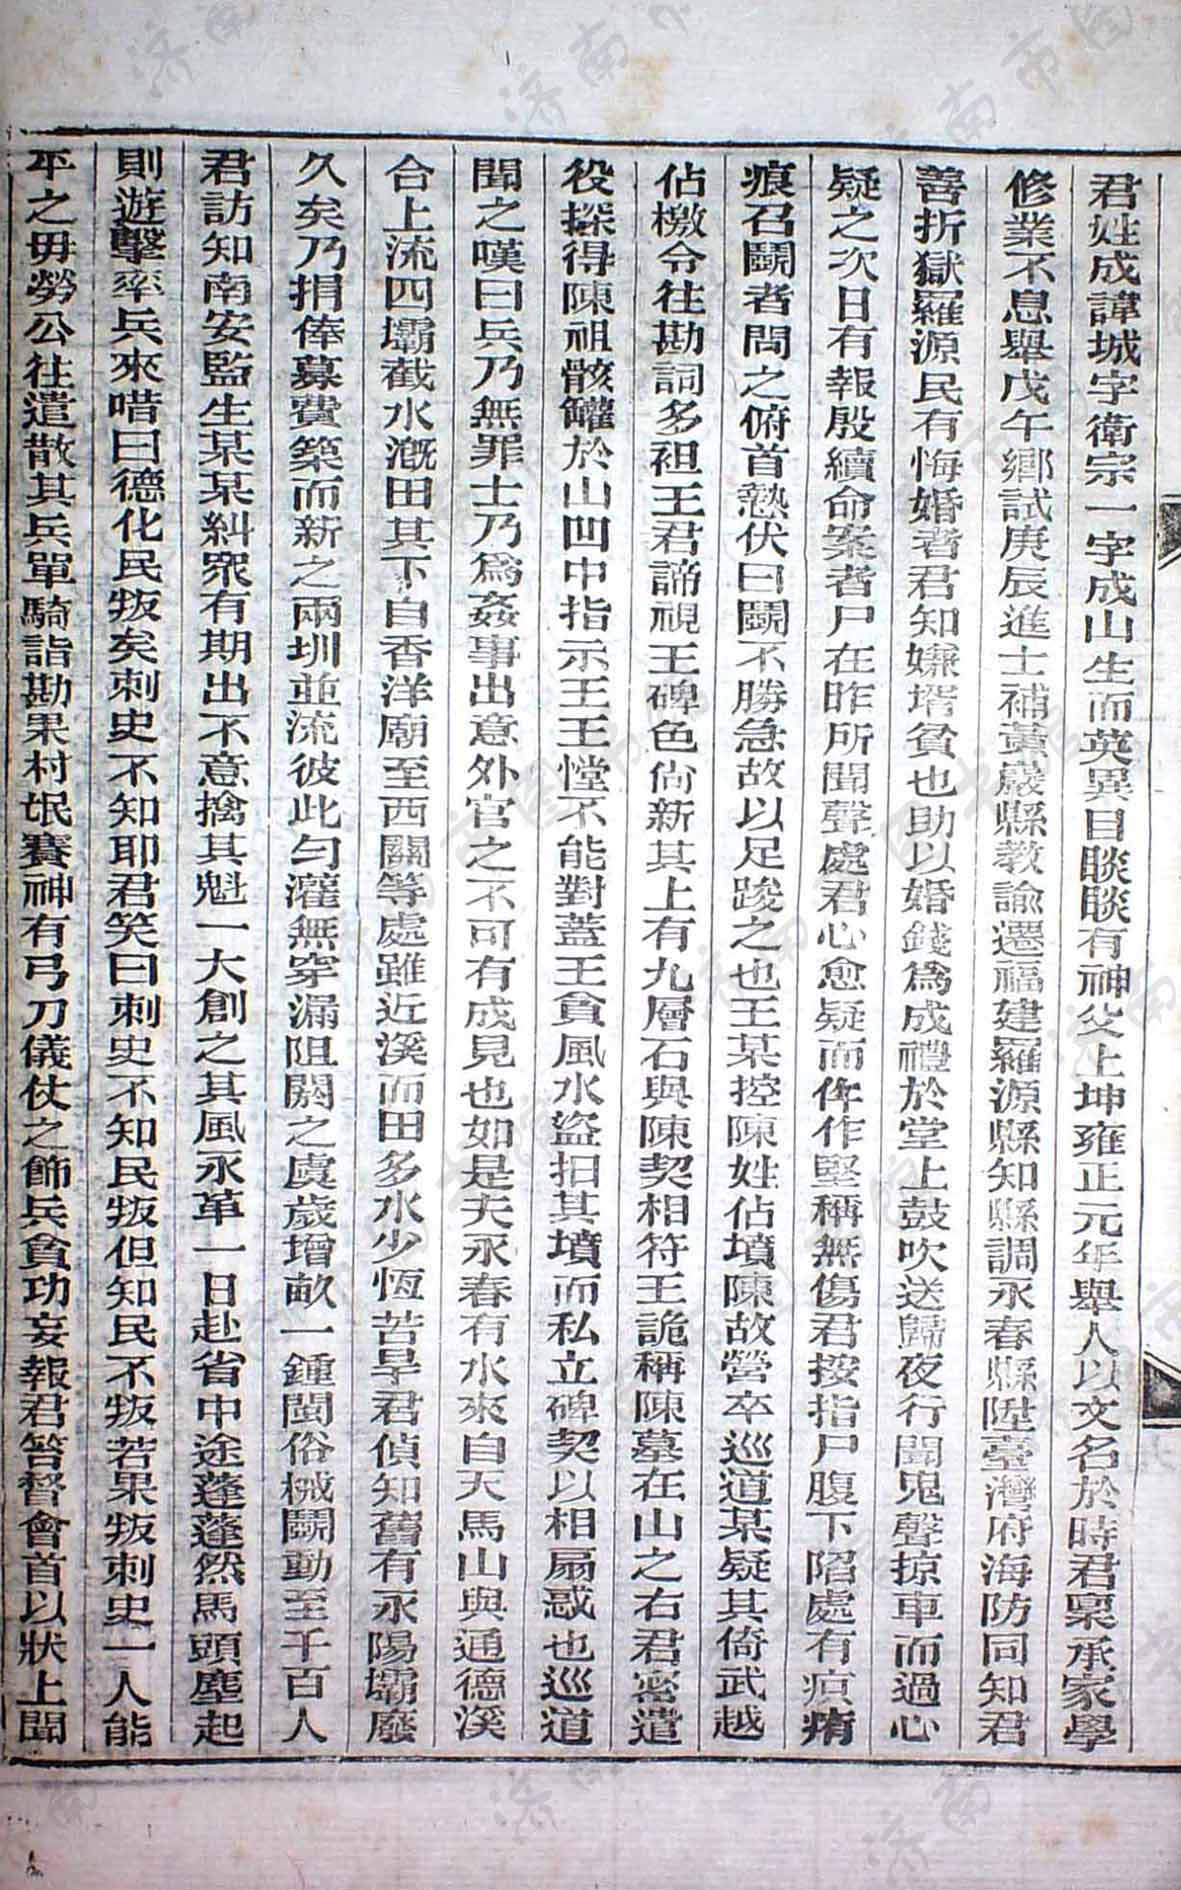 君姓成諱城字衛宗一字成山生而英異目睒睒有神父上坤雍正元年舉人以文名於時君稟承家學
修業不息舉戊午鄉試庚辰進士補黃巖縣教諭遷福建羅源縣知縣調永春縣陞臺灣府海防同知君
善折獄羅源民有悔婚者君知嫌壻貧也助以婚錢爲成禮於堂上鼓吹送歸夜行聞鬼聲掠車而過心
疑之次日有報殷續命案者尸在昨所聞聲處君心愈疑而仵作堅稱無傷君按指尸腹下陷處有疻痏
痕召鬭者問之俯首熱伏曰鬭不勝急故以足踆之也王某控陳姓佔墳陳故營卒巡道某疑其倚武越
佔檄令往勘詞多袒王君諦視王碑色尙新其上有九層石與陳契相符王詭稱陳墓在山之右君密遣
役探得陳祖骸罐於山凹中指示王王愯不能對蓋王貪風水盜抇其墳而私立碑契以相扇惑也巡道
聞之嘆曰兵乃無罪士乃爲姦事出意外官之不可有成見也如是夫永春有水來自天馬山與通德溪
合上流四壩截水漑田其下自香洋廟至西關等處雖近溪而田多水少恆苦旱君偵知舊有永陽壩廢
久矣乃捐俸募費築而新之兩圳並流彼此勻灌無穿漏阻閼之虞歲增畝一鍾閩俗械鬭動至千百人
君訪知南安監生某某糾衆有期出不意擒其魁一大創之其風永革一日赴省中途蓬蓬然馬頭塵起
則遊擊率兵來唶曰德化民叛矣刺史不知耶君笑曰刺史不知民叛但知民不叛若果叛刺史一人能
平之毋勞公往遣散其兵單騎詣勘果村氓賽神有弓刀儀仗之飾兵貪功妄報君笞督會首以狀上聞